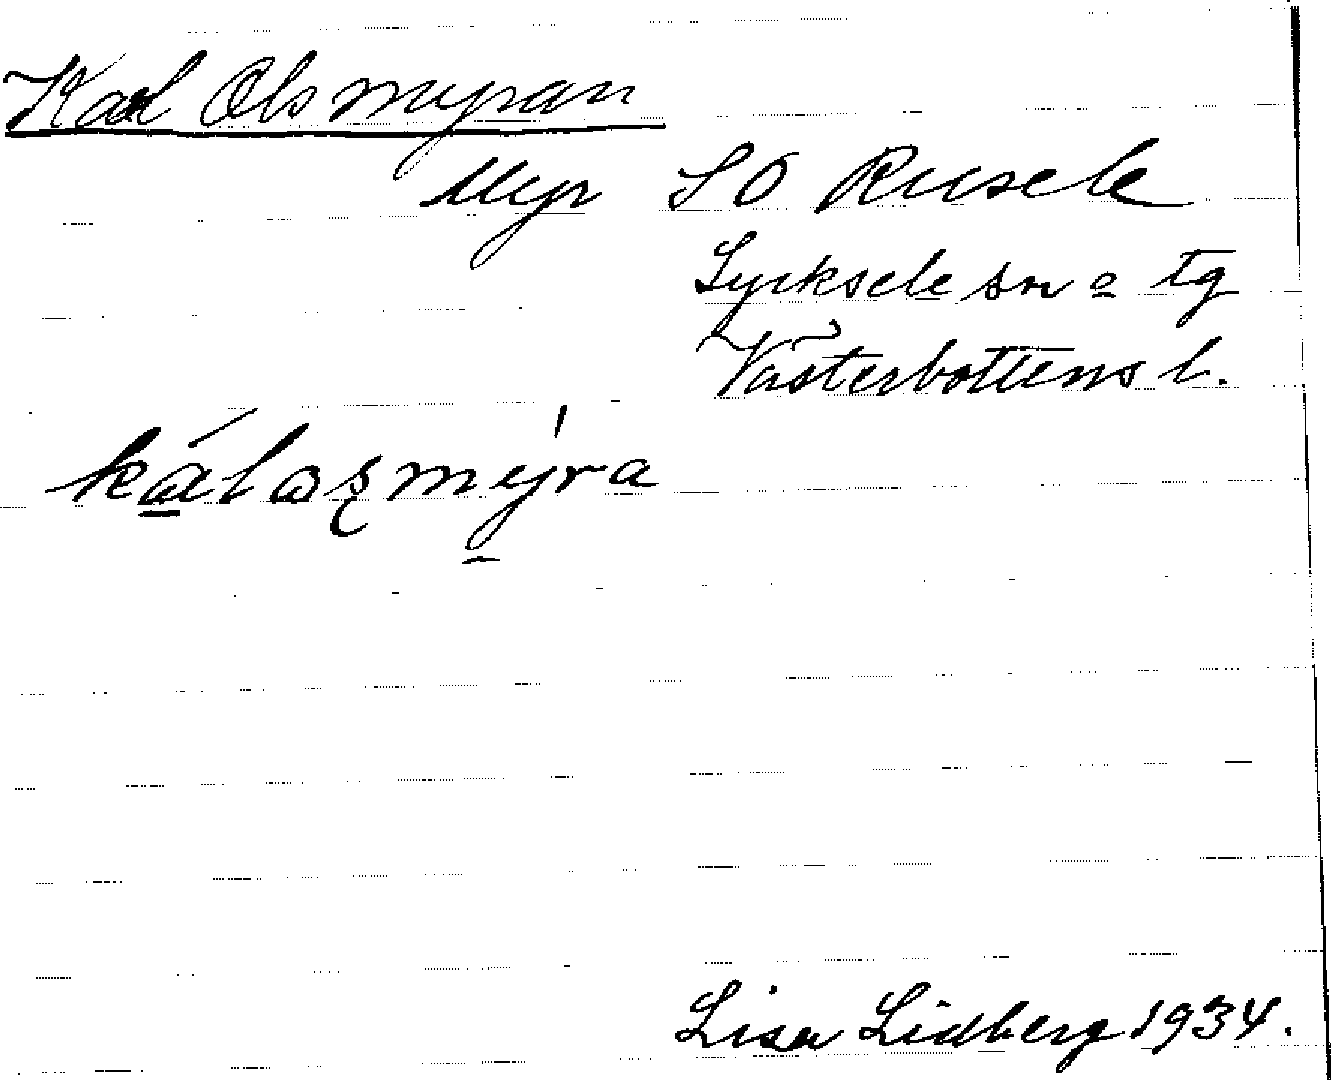 Karl Olsmyran
Myr SO Rusele
Lycksele sn o tg
Västerbottens l.
Lisa Lidberg 1934.